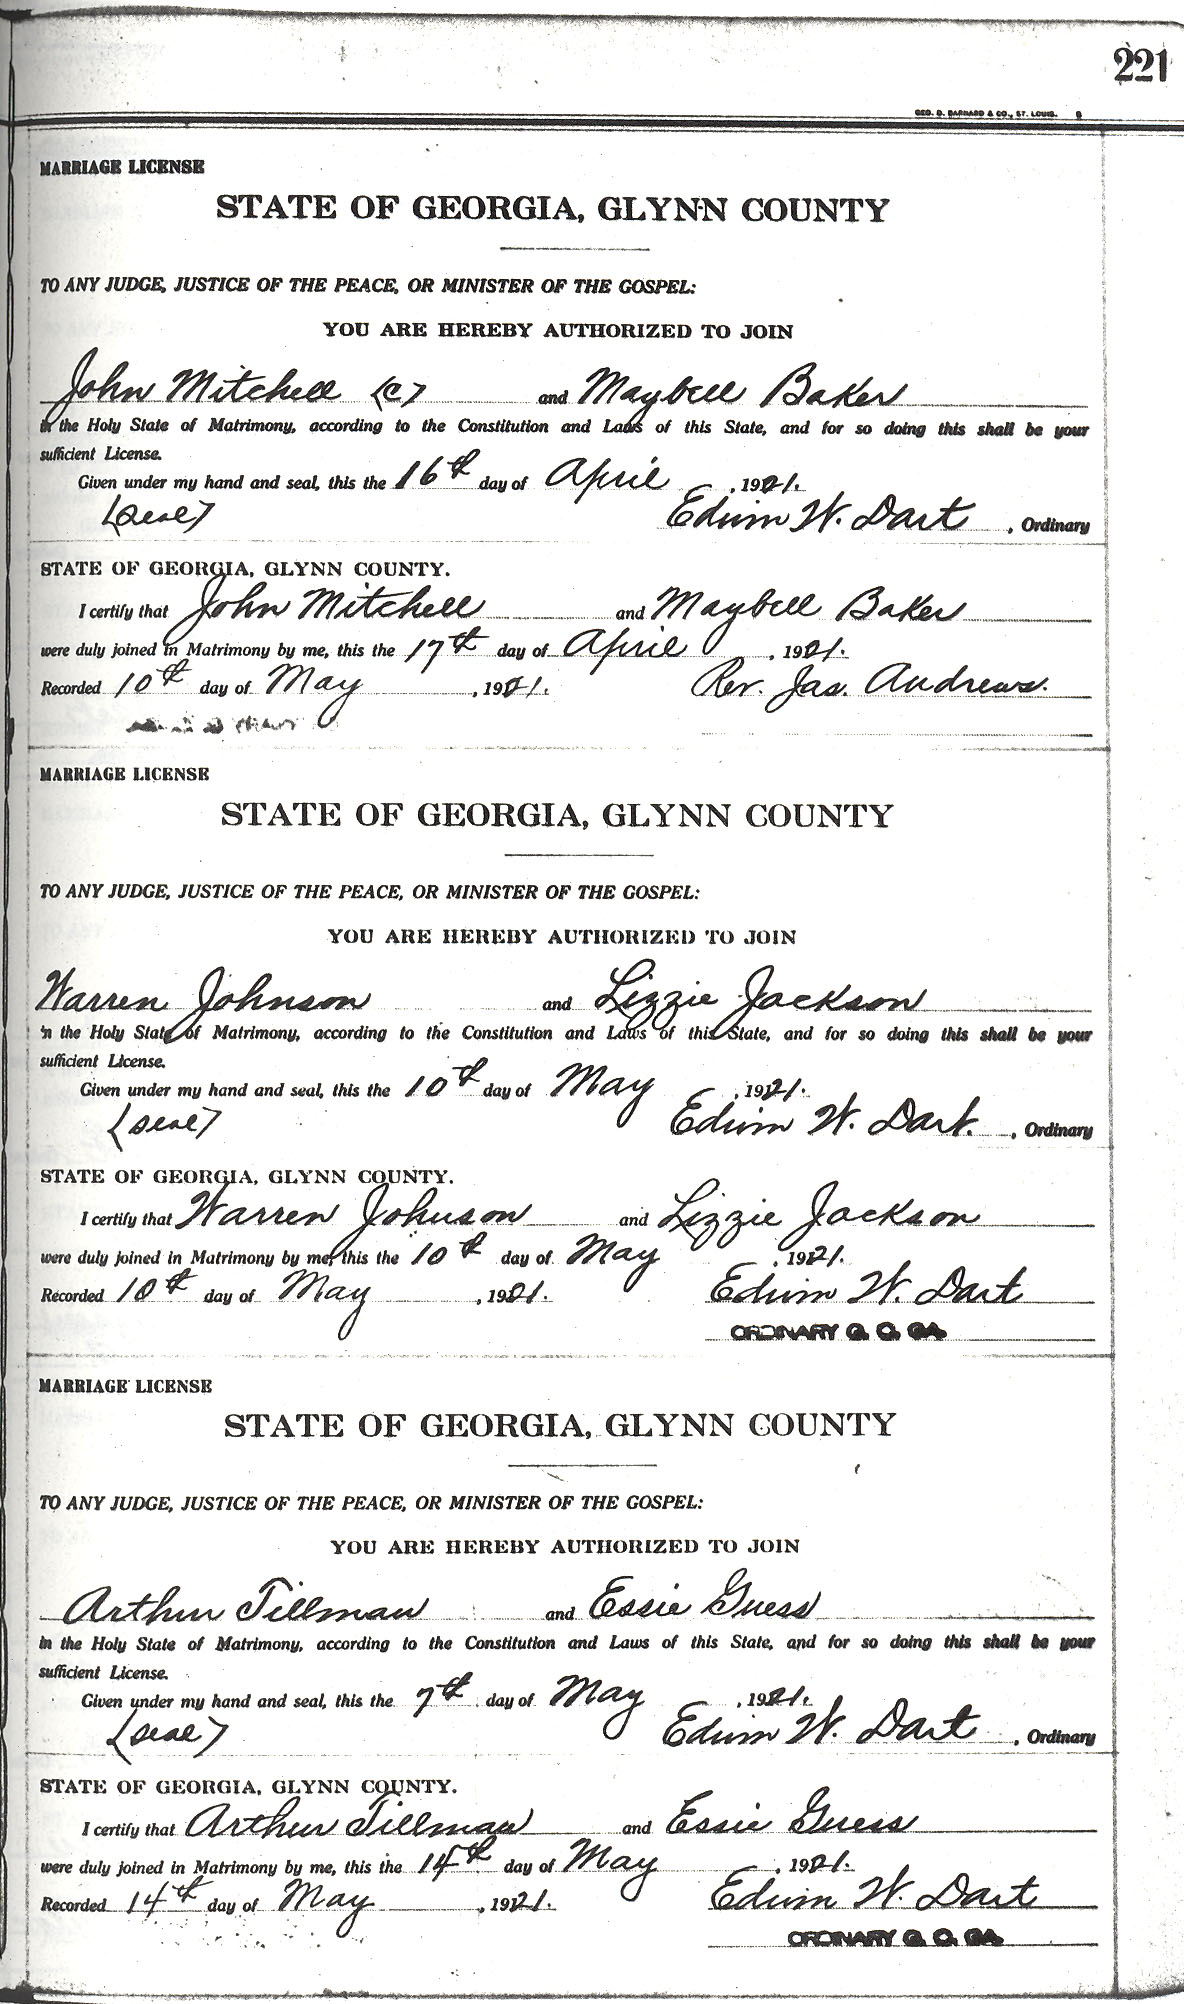 221
GEO. D. BARNARD & CO., ST. LOUIS.
MARRIAGE LICENSE
STATE OF GEORGIA, GLYNN COUNTY
TO ANY JUDGE, JUSTICE OF THE PEACE, OR MINISTER OF THE GOSPEL:
YOU ARE HEREBY AUTHORIZED TO JOIN
John Mitchell (c) and Maybell Baker
in the Holy State of Matrimony, according to the Constitution and Laws of this State, and for so doing this shall be your
sufficient License.
Given under my hand and seal, this the 16th day of April, 1921.
(seal) Edwin W. Dart, Ordinary
STATE OF GEORGIA, GLYNN COUNTY.
I certify that John Mitchell and Maybell Baker
were duly joined in Matrimony by me, this the 17th day of April, 1921.
Recorded 10th day of May, 1921. Rev. Jas. Andrews.
MARRIAGE LICENSE
STATE OF GEORGIA, GLYNN COUNTY
TO ANY JUDGE, JUSTICE OF THE PEACE, OR MINISTER OF THE GOSPEL:
YOU ARE HEREBY AUTHORIZED TO JOIN
Warren Johnson and Lizzie Jackson
in the Holy State of Matrimony, according to the Constitution and Laws of this State, and for so doing this shall be your
sufficient License.
Given under my hand and seal, this the 10th day of May, 1921.
(seal) Edwin W. Dart., Ordinary
STATE OF GEORGIA, GLYNN COUNTY.
I certify that Warren Johnson and Lizzie Jackson
were duly joined in Matrimony by me, this the 10th day of May, 1921.
Recorded 10th day of May, 1921. Edwin W. Dart
ORDINARY G. C. GA.
MARRIAGE LICENSE
STATE OF GEORGIA, GLYNN COUNTY
TO ANY JUDGE, JUSTICE OF THE PEACE, OR MINISTER OF THE GOSPEL:
YOU ARE HEREBY AUTHORIZED TO JOIN
Arthur Tillman and Essie Guess
in the Holy State of Matrimony, according to the Constitution and Laws of this State, and for so doing this shall be your
sufficient License.
Given under my hand and seal, this the 7th day of May, 1921.
(seal) Edwin W. Dart, Ordinary
STATE OF GEORGIA, GLYNN COUNTY.
I certify that Arthur Tillman and Essie Guess
were duly joined in Matrimony by me, this the 14th day of May, 1921.
Recorded 14th day of May, 1921. Edwin W. Dart
ORDINARY G. C. GA.